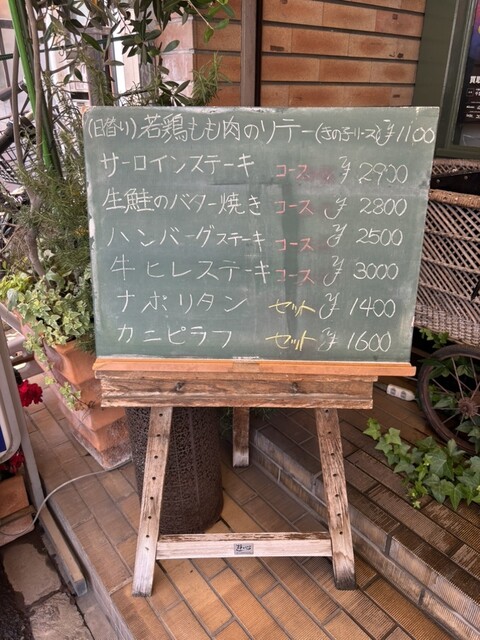 (日替り)若鶏もも肉のソテー(きの子ソース)¥1100
サーロインステーキ コース ¥2900
生鮭のバター焼き コース ¥2800
ハンバーグステーキ コース ¥2500
牛ヒレステーキ コース ¥3000
ナポリタン セット ¥1400
カニピラフ セット ¥1600